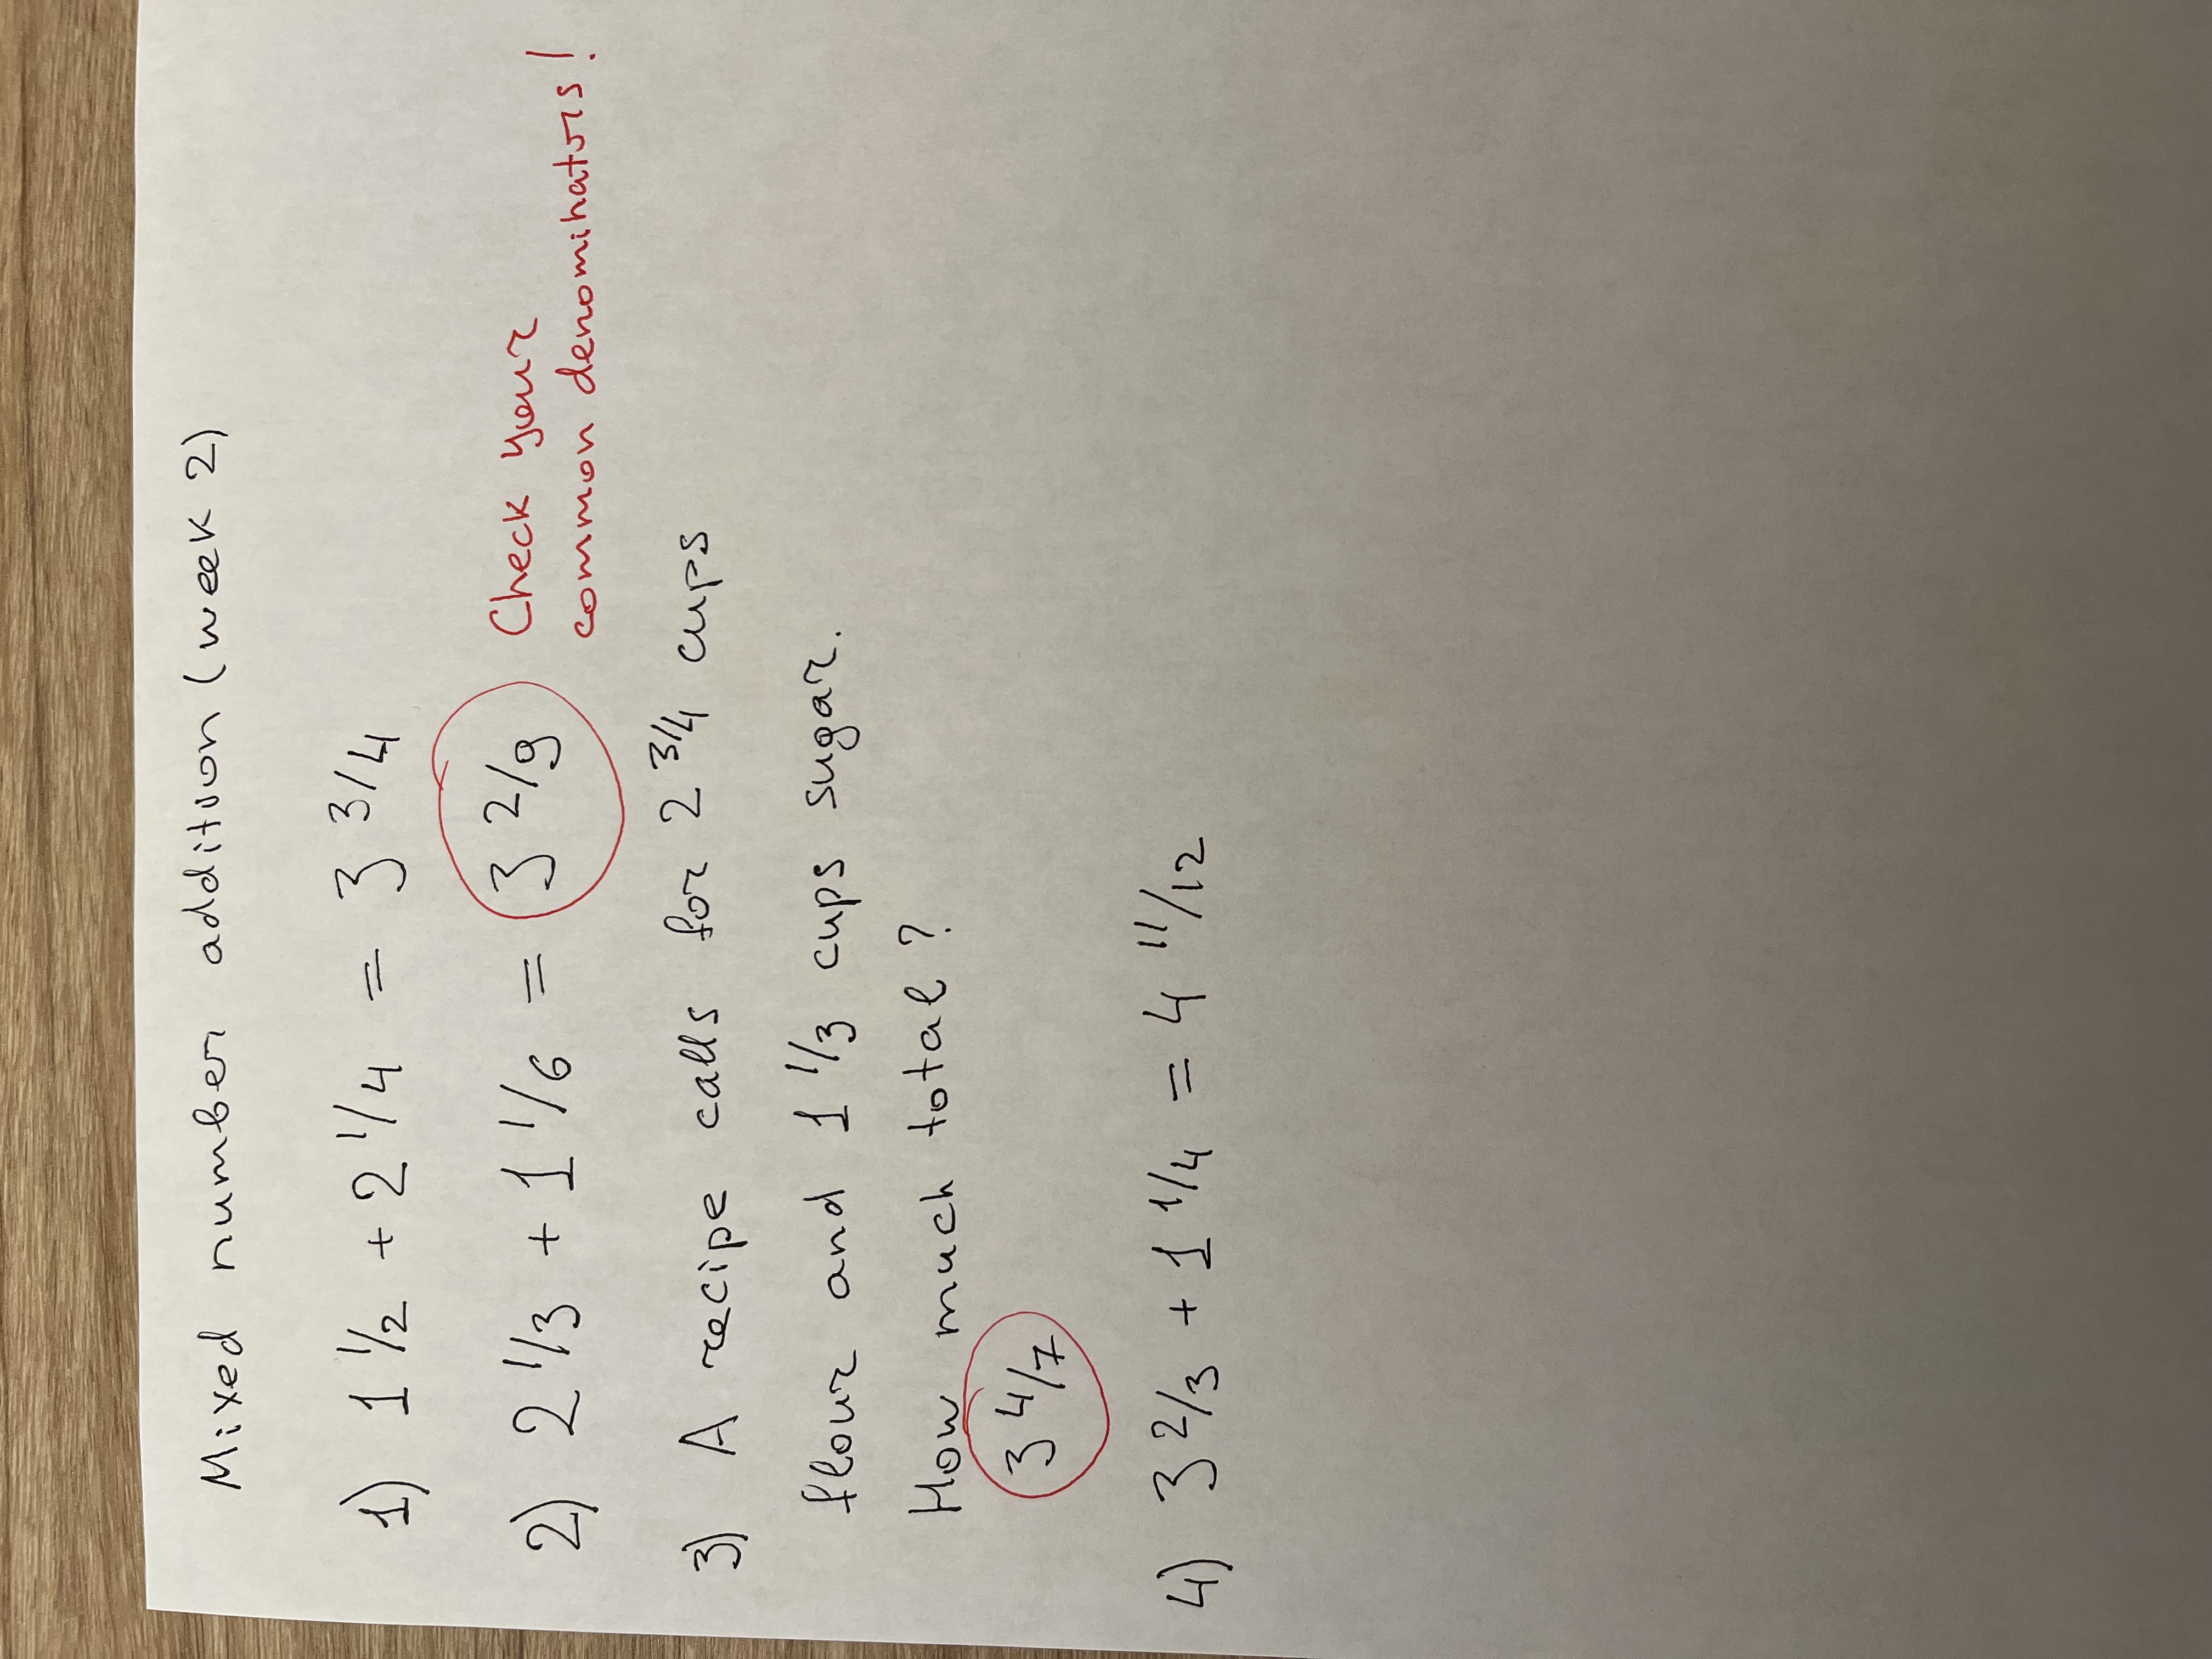 Mixed number addition (week 2)
1) 1 1/2 + 2 1/4 = 3 3/4
2) 2 1/3 + 1 1/6 = 3 2/9 Check your
common denominators!
3) A recipe calls for 2 3/4 cups
flour and 1 1/3 cups sugar.
How much total?
3 4/7
4) 3 2/3 + 1 1/4 = 4 11/12